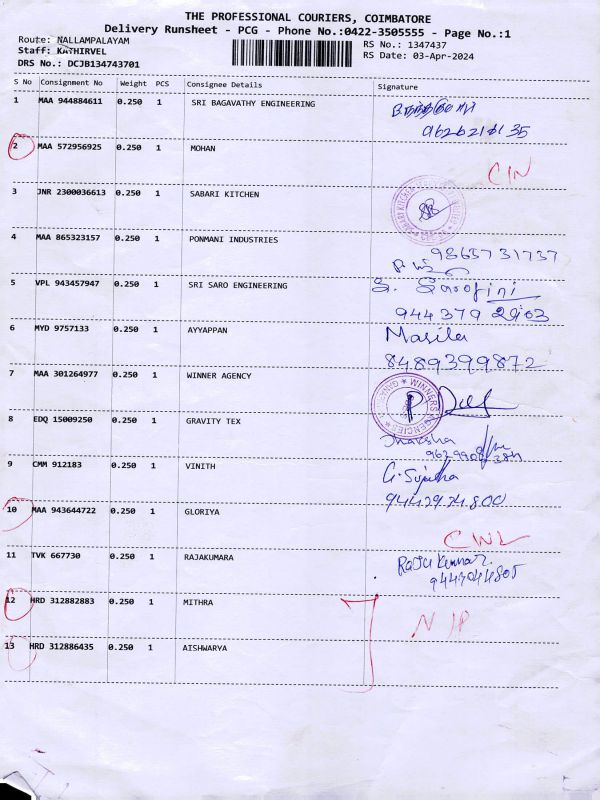 THE PROFESSIONAL COURIERS, COIMBATORE
Delivery Runsheet - PCG - Phone No.:0422-3505555 - Page No.:1
Route: NALLAMPALAYAM RS No.: 1347437
Staff: KATHIRVEL RS Date: 03-Apr-2024
DRS No.: DCJB134743701
S No Consignment No Weight PCS Consignee Details Signature
1 MAA 944884611 0.250 1 SRI BAGAVATHY ENGINEERING
2 MAA 572956925 0.250 1 MOHAN
CIN
3 JNR 2300036613 0.250 1 SABARI KITCHEN
4 MAA 865323157 0.250 1 PONMANI INDUSTRIES
5 VPL 943457947 0.250 1 SRI SARO ENGINEERING
S. Sarojini
944 379 2903
6 MYD 9757133 0.250 1 AYYAPPAN Masila
8489399872
7 MAA 301264977 0.250 1 WINNER AGENCY
WINNERS AGENCIES
8 EDQ 15009250 0.250 1 GRAVITY TEX
9 CMM 912183 0.250 1 VINITH
10 MAA 943644722 0.250 1 GLORIYA
CWL
11 TVK 667730 0.250 1 RAJAKUMARA
9443044805
12 HRD 312882883 0.250 1 MITHRA
N/P
13 HRD 312886435 0.250 1 AISHWARYA